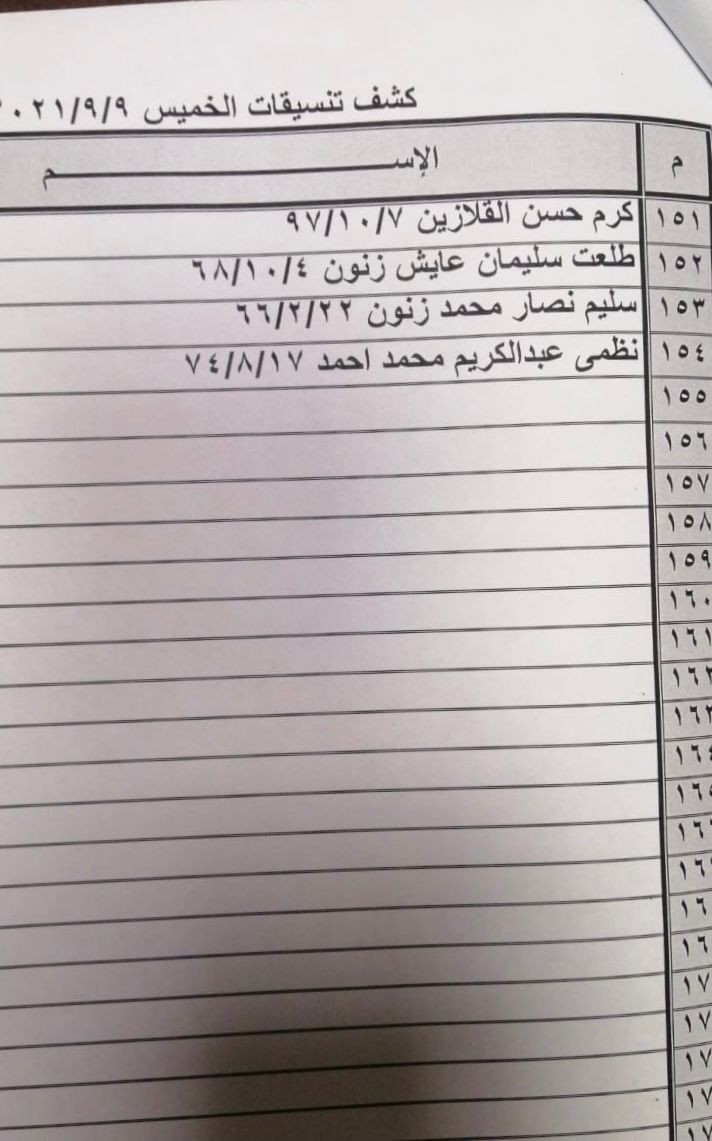 كشف تنسيقات الخميس ٢٠٢١/٩/٩
م الإســـــــــــــــــم
١٥١ كرم حسن القلازين ٩٧/١٠/٧
١٥٢ طلعت سليمان عايش زنون ٦٨/١٠/٤
١٥٣ سليم نصار محمد زنون ٦٦/٢/٢٢
١٥٤ نظمى عبدالكريم محمد احمد ٧٤/٨/١٧
١٥٥
١٥٦
١٥٧
١٥٨
١٥٩
١٦٠
١٦١
١٦٢
١٦٣
١٦٤
١٦٥